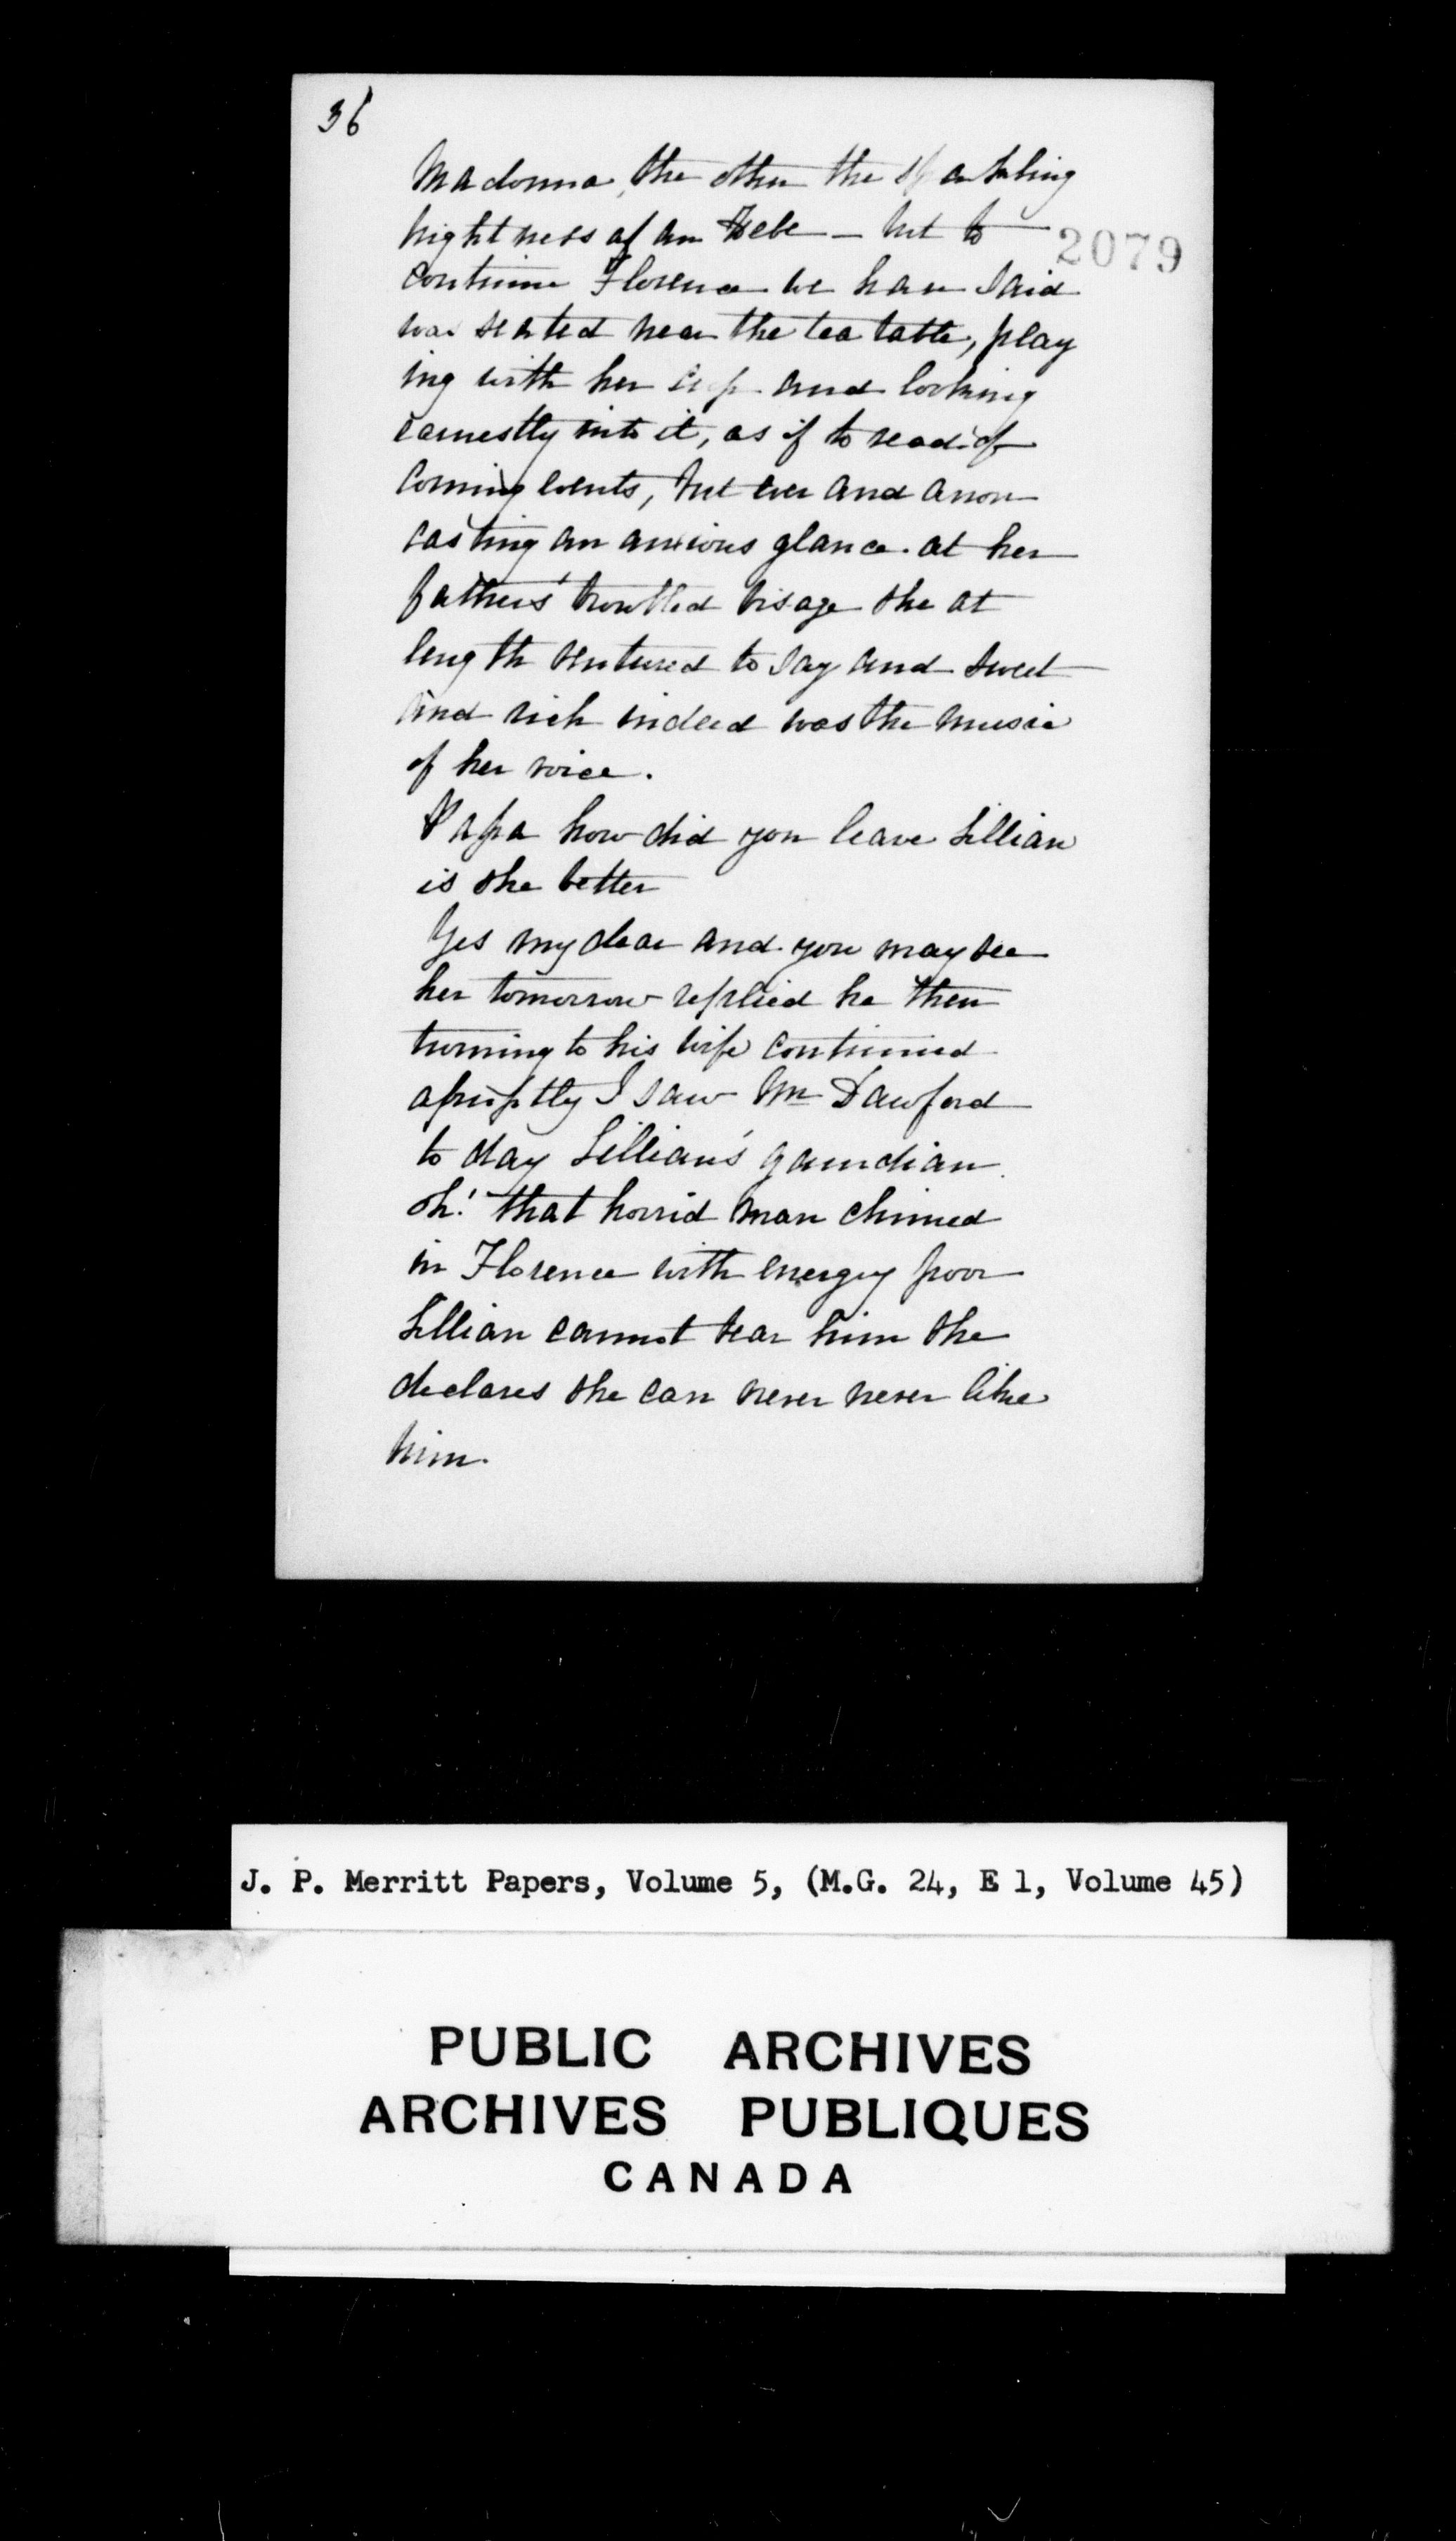 36
Madonna, the other the sparkling
brightness of an Hebe — but to
2079
continue Florence we have said
was seated near the tea table, play
ing with her cup and looking
earnestly into it, as if to read of
coming events, but ever and anon
casting an anxious glance at her
father's troubled visage she at
length ventured to say and sweet
and rich indeed was the music
of her voice.
Papa how did you leave Lillian
is she better
Yes my dear and you may see
her tomorrow replied he then
turning to his wife continued
abruptly I saw Mr Dawford
to day Lillian's gaurdian
oh! that horrid man chimed
in Florence with energy poor
Lillian cannot bear him she
declares she can never never like
him.
J. P. Merritt Papers, Volume 5, (M.G. 24, E 1, Volume 45)
PUBLIC ARCHIVES
ARCHIVES PUBLIQUES
CANADA